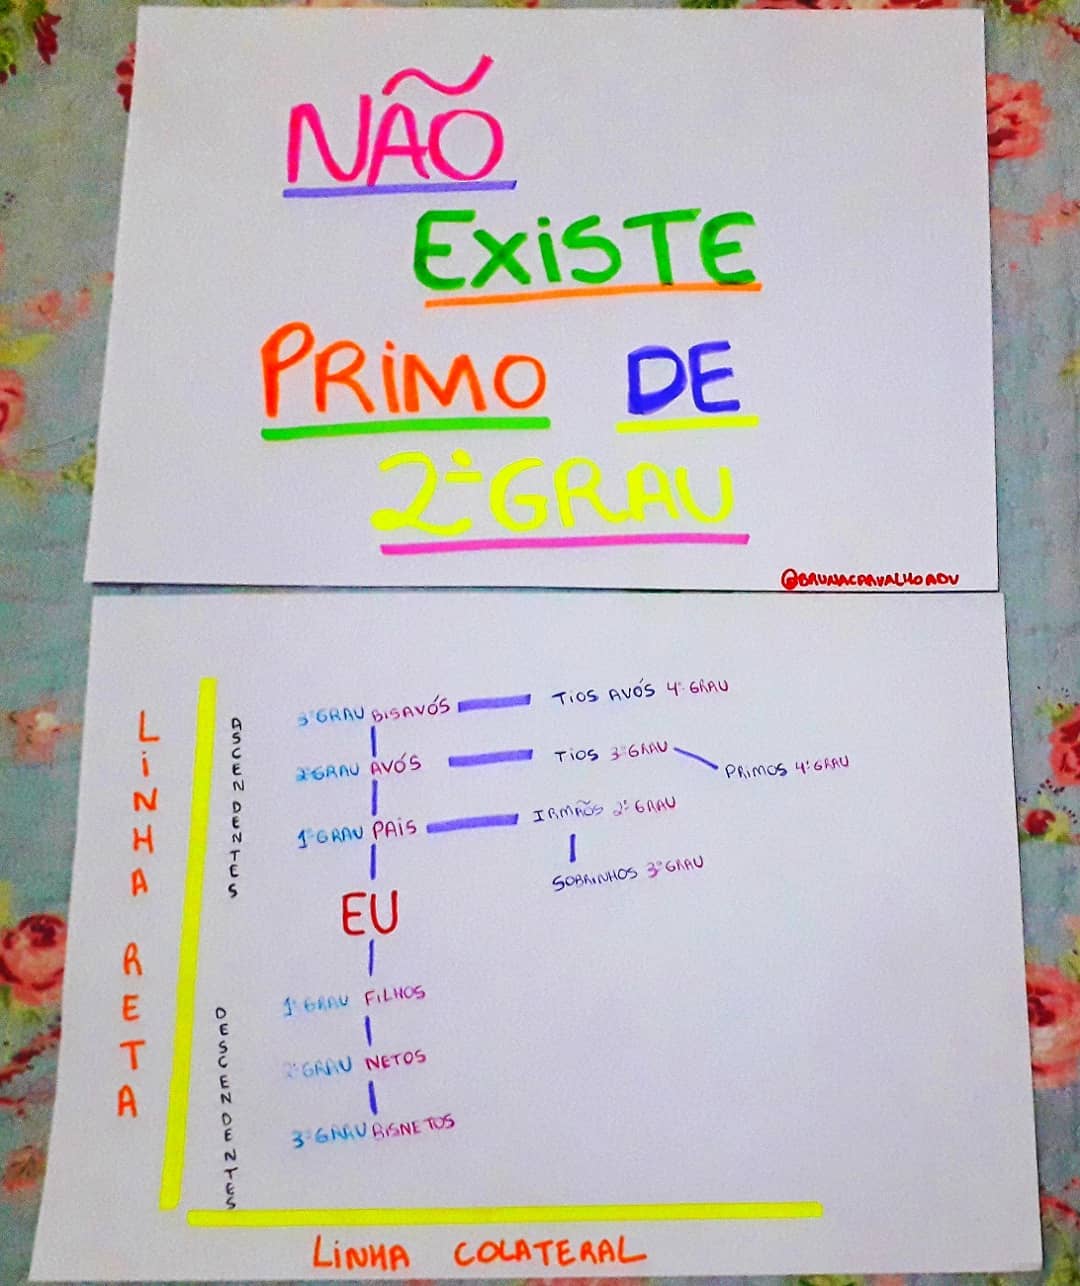 NÃO
EXISTE
PRIMO DE
2º GRAU
@BRUNACARVALHOADV
LINHA RETA
ASCENDENTES
DESCENDENTES
3º GRAU BISAVÓS TIOS AVÓS 4º GRAU
2º GRAU AVÓS TIOS 3º GRAU PRIMOS 4º GRAU
1º GRAU PAIS IRMÃOS 2º GRAU
SOBRINHOS 3º GRAU
EU
1º GRAU FILHOS
2º GRAU NETOS
3º GRAU BISNETOS
LINHA COLATERAL